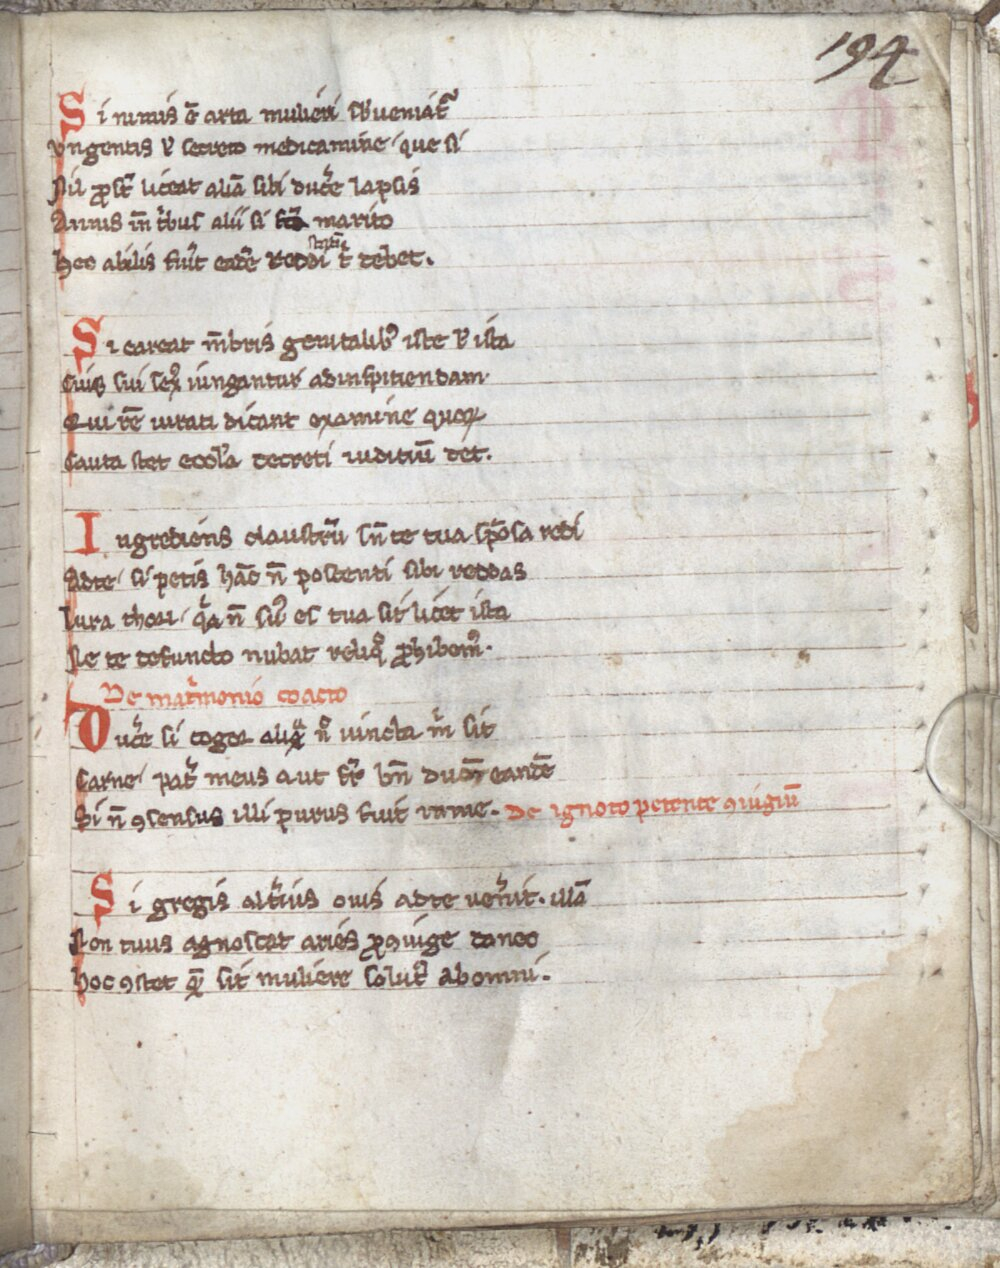 194
Si nimis ē arta mulieri sbueniat᷑
Vngentis ł secreto medicamine que si
Nil ꝓst liceat aliā sibi duc̉e lapsis
Annis m̄ tͥbus alii si marito
Hec abilis fuit᷑ eadē reddi debet.
Si careat m̄bris genitalibꝰ iste ł ista
Cuiꝰ sui sexꝰ iungantur ad inspitiendam
Qui rē iurati dicant examine quoꝝ
Cauta stet eccl̄a decreti iuditiū det.
Ingrediens claustrū sn̄ te tua spōsa redi
Ad te si petis hāc n̄ poscenti sibi reddas
Iura thori qͣ n̄ siͥ es tua sit licet ista
Ne te defuncto nubat reliqͦ ꝓhibemꝰ.
De mat᷑monio coacto
Duc̉e si cogor aliqͣ n̄ iuncta m̄ sit
Carne pat᷑ meus aut fr̄ bn̄ ducēt eandē
Si n̄ ꝯsensus illi purus fuit in me. De ignoto petente ꝯiugiū
Si gregis alt᷑ius ouis ad te uen̉it. illā
Non tuus agnoscat aries ꝓ ꝯiuge donec
Hoc ꝯstet qͩ sit muliere solut᷑ ab omni.